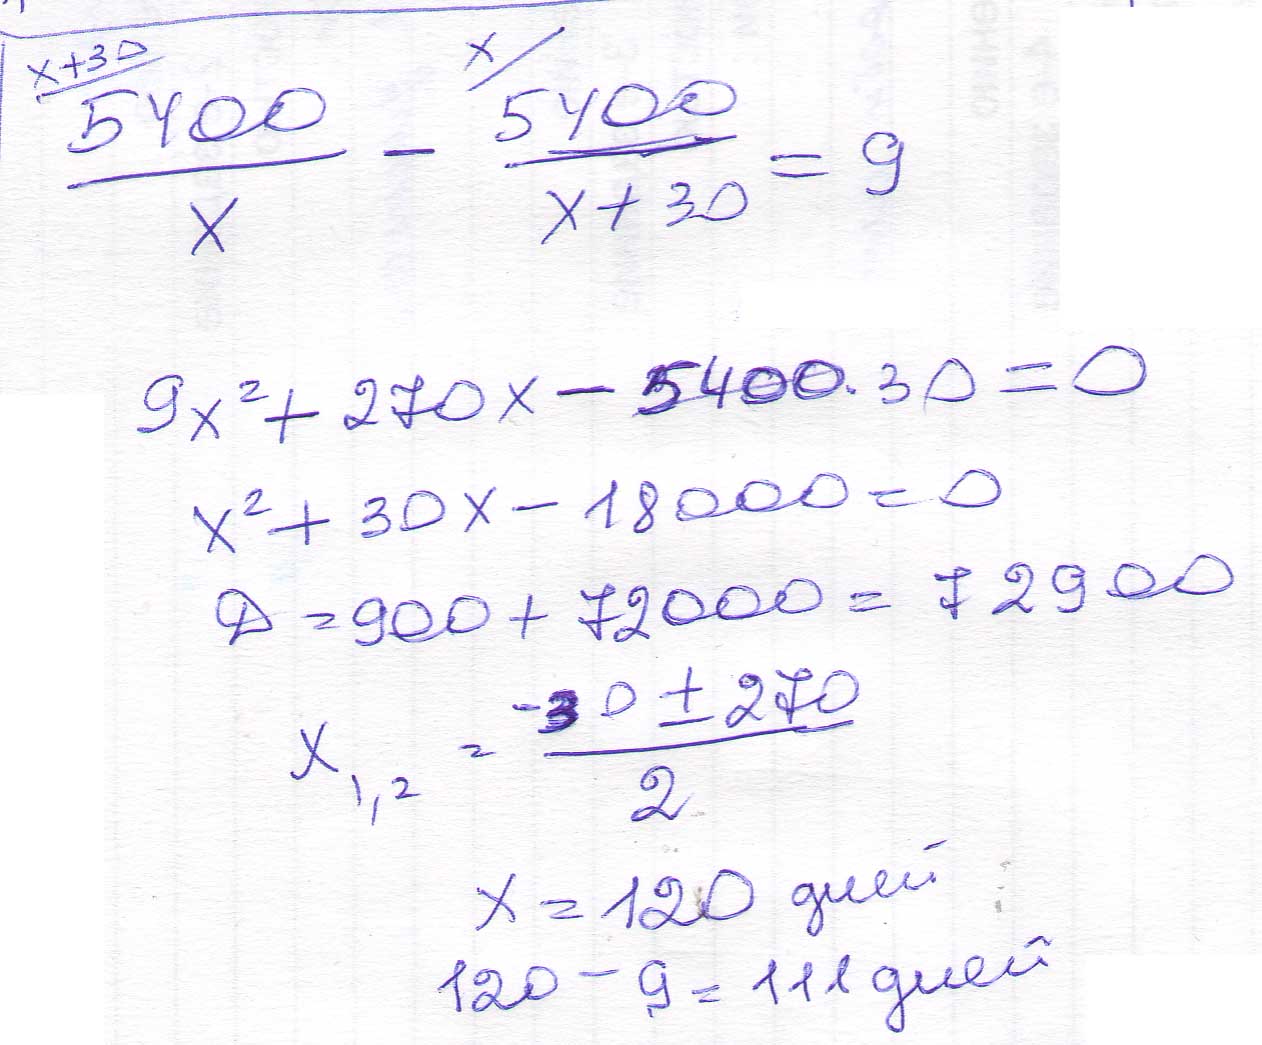 x+30 x/
5400/x - 5400/x+30 = 9
9x²+270x-5400·30=0
x²+30x-18000=0
D=900+72000=72900
x1,2 = -30±270/2
x=120 дней
120-9=111 дней